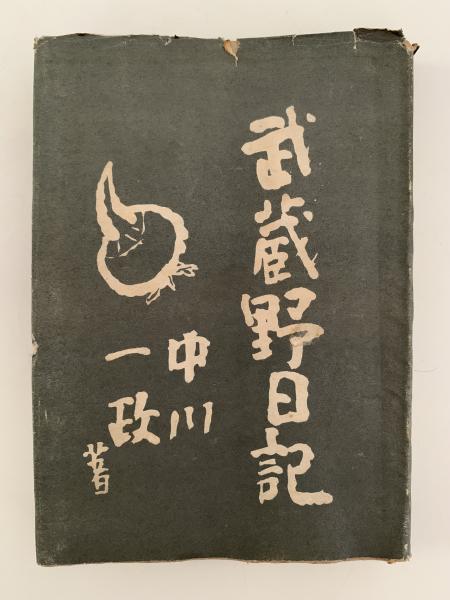 武蔵野日記
中川
一政
著